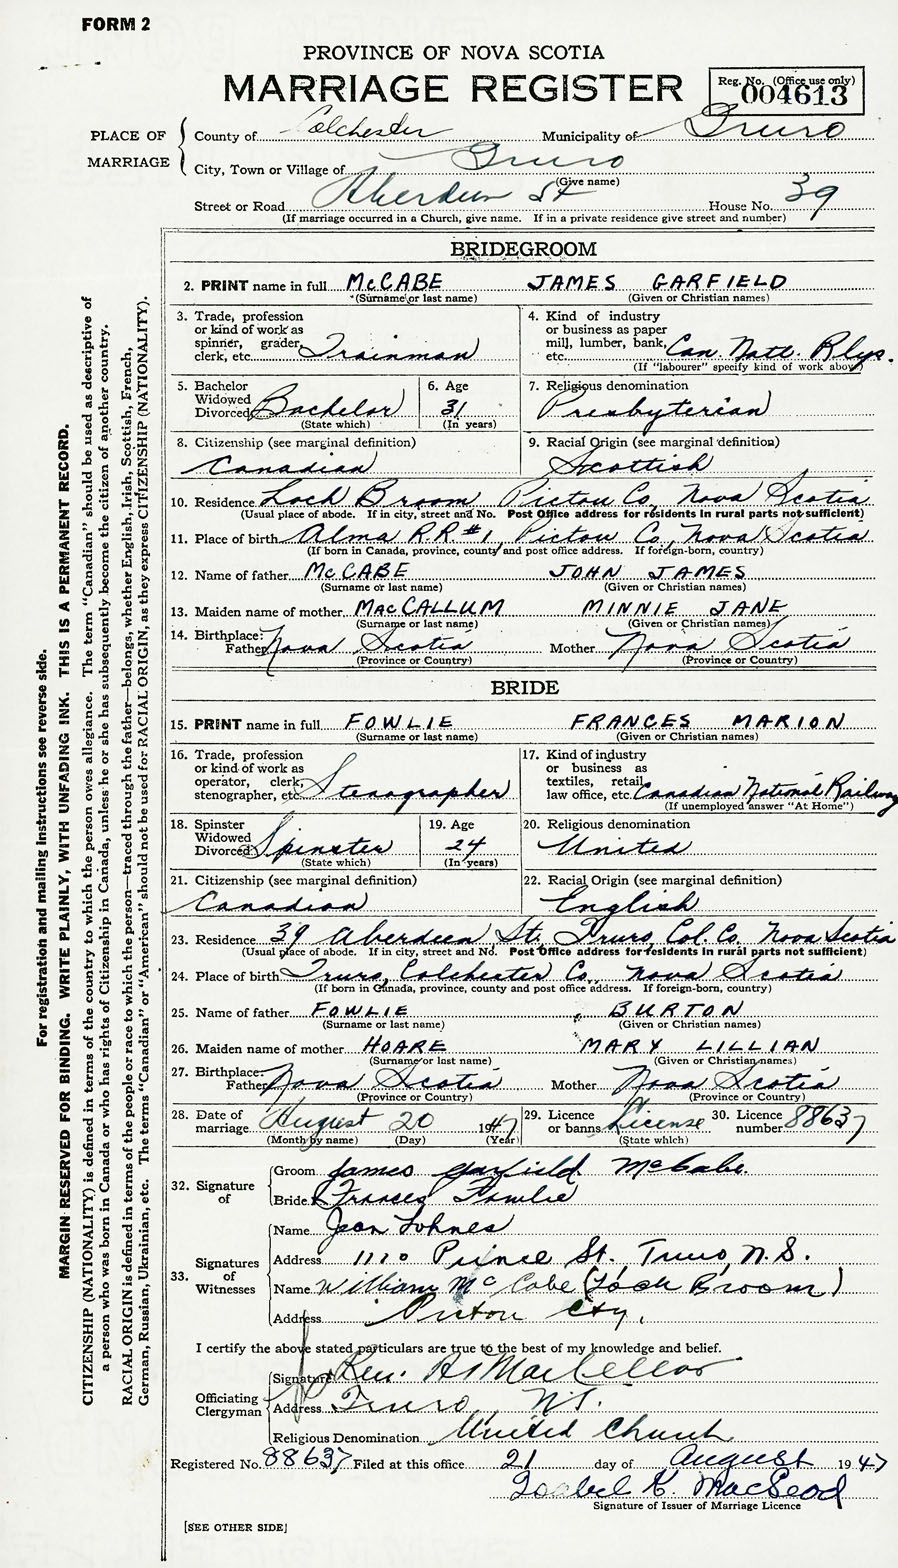 FORM 2
PROVINCE OF NOVA SCOTIA
MARRIAGE REGISTER
Reg. No. (Office use only)
004613
PLACE OF MARRIAGE
County of Colchester Municipality of Truro
City, Town or Village of Truro
(Give name)
Street or Road Aberdeen St House No. 39
(If marriage occurred in a Church, give name. If in a private residence give street and number)
BRIDEGROOM
2. PRINT name in full McCABE JAMES GARFIELD
(Surname or last name) (Given or Christian names)
3. Trade, profession or kind of work as spinner, grader, clerk, etc. Trainman
4. Kind of industry or business as paper mill, lumber, bank, etc. Can. Natl. Rlys.
(If "labourer" specify kind of work above)
5. Bachelor Widowed Divorced Bachelor
(State which)
6. Age 31
(In years)
7. Religious denomination
Presbyterian
8. Citizenship (see marginal definition)
Canadian
9. Racial Origin (see marginal definition)
Scottish
10. Residence Loch Broom Pictou Co, Nova Scotia
(Usual place of abode. If in city, street and No. Post Office address for residents in rural parts not sufficient)
11. Place of birth Alma R.R.#1, Pictou Co, Nova Scotia
(If born in Canada, province, county and post office address. If foreign-born, country)
12. Name of father McCABE JOHN JAMES
(Surname or last name) (Given or Christian names)
13. Maiden name of mother MacCALLUM MINNIE JANE
(Surname or last name) (Given or Christian names)
14. Birthplace: Father Nova Scotia Mother Nova Scotia
(Province or Country) (Province or Country)
BRIDE
15. PRINT name in full FOWLIE FRANCES MARION
(Surname or last name) (Given or Christian names)
16. Trade, profession or kind of work as operator, clerk, stenographer, etc Stenographer
17. Kind of industry or business as textiles, retail, law office, etc. Canadian National Railway
(If unemployed answer "At Home")
18. Spinster Widowed Divorced Spinster
(State which)
19. Age 24
(In years)
20. Religious denomination
United
21. Citizenship (see marginal definition)
Canadian
22. Racial Origin (see marginal definition)
English
23. Residence 39 Aberdeen St., Truro, Col. Co. Nova Scotia
(Usual place of abode. If in city, street and No. Post Office address for residents in rural parts not sufficient)
24. Place of birth Truro, Colchester Co., Nova Scotia
(If born in Canada, province, county and post office address. If foreign-born, country)
25. Name of father FOWLIE BURTON
(Surname or last name) (Given or Christian names)
26. Maiden name of mother HOARE MARY LILLIAN
(Surname or last name) (Given or Christian names)
27. Birthplace: Father Nova Scotia Mother Nova Scotia
(Province or Country) (Province or Country)
28. Date of marriage August 20 1947
(Month by name) (Day) (Year)
29. Licence or banns License
(State which)
30. Licence number 88637
32. Signature of
Groom James Garfield McCabe.
Bride Frances Fowlie
33. Signatures of Witnesses
Name Jean Lohnes
Address 1110 Prince St., Truro, N.S.
Name William McCabe (Loch Broom)
Address Pictou Cty.
I certify the above stated particulars are true to the best of my knowledge and belief.
Officiating Clergyman
Signature Rev. A MacKellor
Address Truro N.S.
Religious Denomination United Church
Registered No. 88637 Filed at this office 21 day of August 1947
Isabel K. MacLeod
Signature of Issuer of Marriage Licence
[SEE OTHER SIDE]
For registration and mailing instructions see reverse side.
MARGIN RESERVED FOR BINDING. WRITE PLAINLY, WITH UNFADING INK. THIS IS A PERMANENT RECORD.
CITIZENSHIP (NATIONALITY) is defined in terms of the country to which the person owes allegiance. The term "Canadian" should be used as descriptive of
a person who was born in Canada or who has rights of Citizenship in Canada, unless he or she has subsequently become the citizen of another country.
RACIAL ORIGIN is defined in terms of the people or race to which the person—traced through the father—belongs, whether English, Irish, Scottish, French,
German, Russian, Ukrainian, etc. The terms "Canadian" or "American" should not be used for RACIAL ORIGIN, as they express CITIZENSHIP (NATIONALITY).